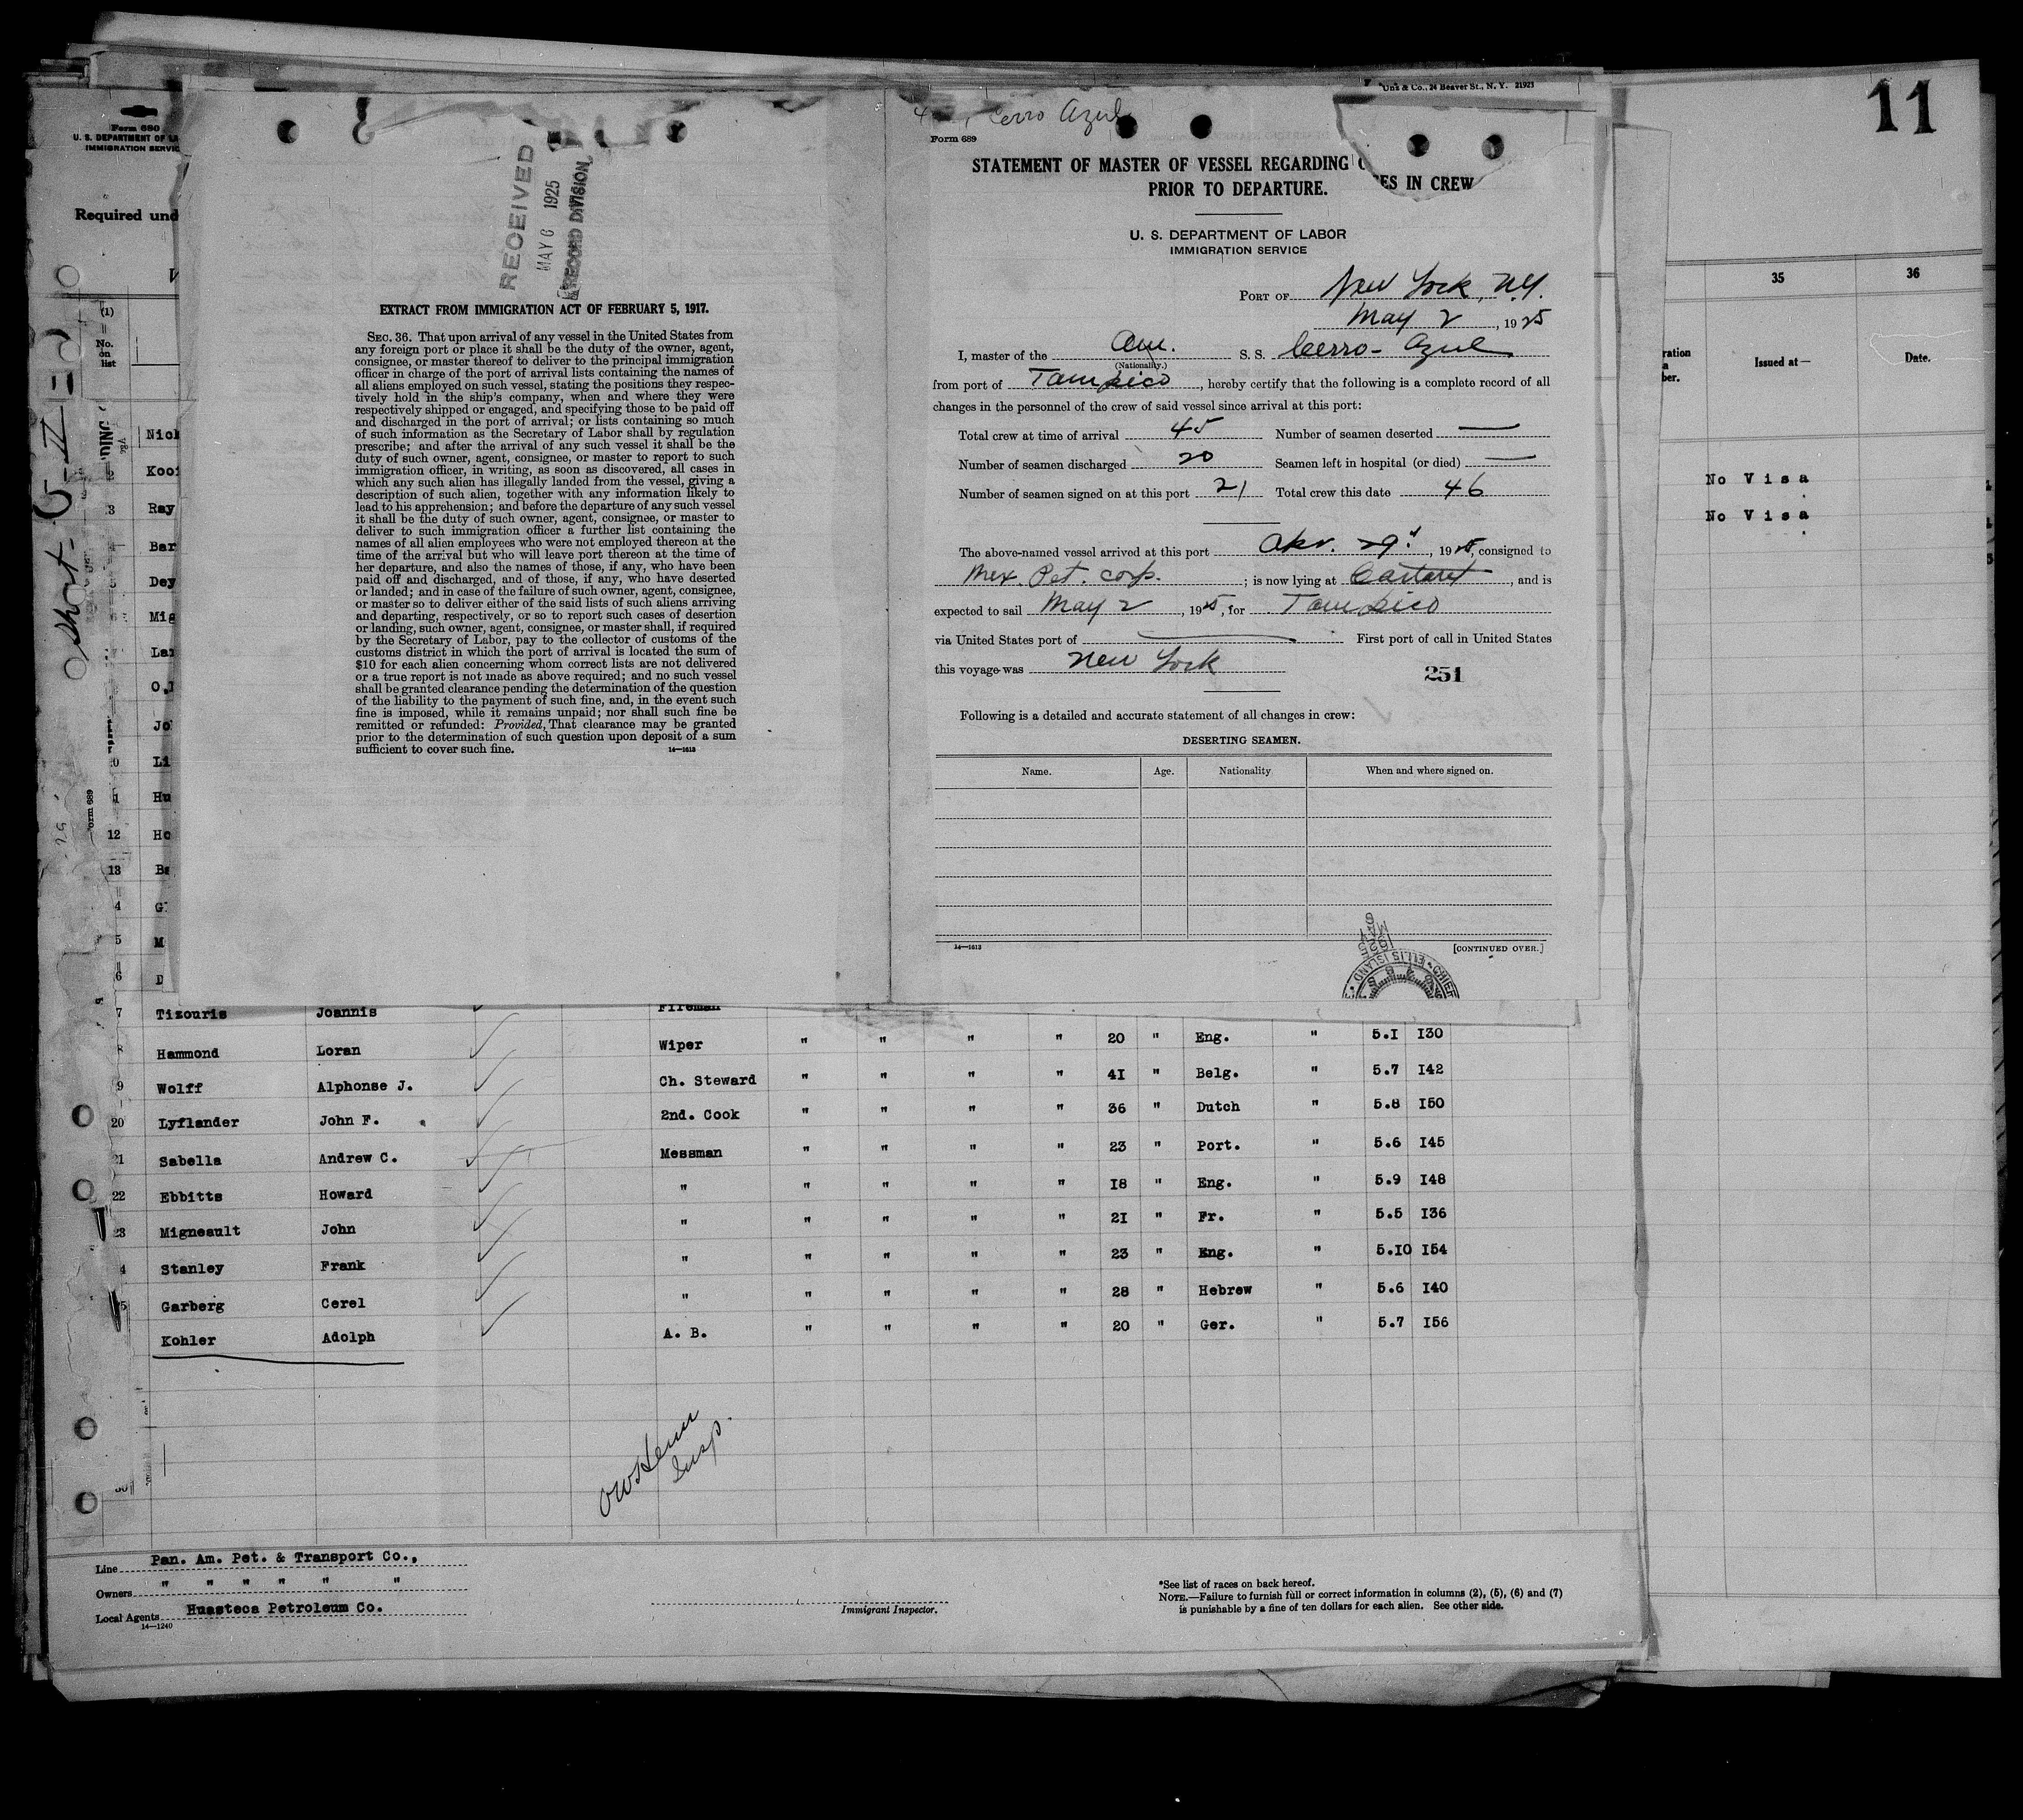 11
Uns & Co., 24 Beaver St., N. Y. 21923
Form 680
U. S. DEPARTMENT OF LA
IMMIGRATION SERVIC
Required und
(1)
No.
on
list
Nich
Kooi
3 Ray
Bar
Dey
Mig
Lar
Jo
0 Li
1 Hu
12 Ho
13
4 G
5 M
6 D
short
Form 689
RECEIVED
MAY 6 1925
RECORD DIVISION
EXTRACT FROM IMMIGRATION ACT OF FEBRUARY 5, 1917.
SEC. 36. That upon arrival of any vessel in the United States from
any foreign port or place it shall be the duty of the owner, agent,
consignee, or master thereof to deliver to the principal immigration
officer in charge of the port of arrival lists containing the names of
all aliens employed on such vessel, stating the positions they respec-
tively hold in the ship's company, when and where they were
respectively shipped or engaged, and specifying those to be paid off
and discharged in the port of arrival; or lists containing so much
of such information as the Secretary of Labor shall by regulation
prescribe; and after the arrival of any such vessel it shall be the
duty of such owner, agent, consignee, or master to report to such
immigration officer, in writing, as soon as discovered, all cases in
which any such alien has illegally landed from the vessel, giving a
description of such alien, together with any information likely to
lead to his apprehension; and before the departure of any such vessel
it shall be the duty of such owner, agent, consignee, or master to
deliver to such immigration officer a further list containing the
names of all alien employees who were not employed thereon at the
time of the arrival but who will leave port thereon at the time of
her departure, and also the names of those, if any, who have been
paid off and discharged, and of those, if any, who have deserted
or landed; and in case of the failure of such owner, agent, consignee,
or master so to deliver either of the said lists of such aliens arriving
and departing, respectively, or so to report such cases of desertion
or landing, such owner, agent, consignee, or master shall, if required
by the Secretary of Labor, pay to the collector of customs of the
customs district in which the port of arrival is located the sum of
$10 for each alien concerning whom correct lists are not delivered
or a true report is not made as above required; and no such vessel
shall be granted clearance pending the determination of the question
of the liability to the payment of such fine, and, in the event such
fine is imposed, while it remains unpaid; nor shall such fine be
remitted or refunded: Provided, That clearance may be granted
prior to the determination of such question upon deposit of a sum
sufficient to cover such fine. 14—1613
Cerro Azul
Form 689
STATEMENT OF MASTER OF VESSEL REGARDING C ES IN CREW
PRIOR TO DEPARTURE.
U. S. DEPARTMENT OF LABOR
IMMIGRATION SERVICE
PORT OF New York, N.Y.
May 2, 1925
I, master of the Am. S. S. Cerro-Azul
(Nationality.)
from port of Tampico, hereby certify that the following is a complete record of all
changes in the personnel of the crew of said vessel since arrival at this port:
Total crew at time of arrival 45 Number of seamen deserted —
Number of seamen discharged 20 Seamen left in hospital (or died) —
Number of seamen signed on at this port 21 Total crew this date 46
The above-named vessel arrived at this port Apr. 29, 1925, consigned to
Mex. Pet. Corp.; is now lying at Carteret, and is
expected to sail May 2, 1925, for Tampico
via United States port of — First port of call in United States
this voyage was New York
251
Following is a detailed and accurate statement of all changes in crew:
DESERTING SEAMEN.
Name. Age. Nationality When and where signed on.
14—1613 [CONTINUED OVER.]
MAY 6 1925
ELLIS ISLAND CHIEF
35 36
ration
a
ber.
Issued at— Date.
No Visa
No Visa
7 Tizouris Joannis Fireman
8 Hammond Loran Wiper " " " " 20 " Eng. " 5.1 130
9 Wolff Alphonse J. Ch. Steward " " " " 41 " Belg. " 5.7 142
20 Lyflander John F. 2nd. Cook " " " " 36 " Dutch " 5.8 150
21 Sabella Andrew C. Messman " " " " 23 " Port. " 5.6 145
22 Ebbitts Howard " " " " " 18 " Eng. " 5.9 148
23 Migneault John " " " " " 21 " Fr. " 5.5 136
4 Stanley Frank " " " " " 23 " Eng. " 5.10 154
25 Garberg Cerel " " " " " 28 " Hebrew " 5.6 140
Kohler Adolph A. B. " " " " 20 " Ger. " 5.7 156
Insp.
Line Pan. Am. Pet. & Transport Co.,
Owners " " " " " "
Local Agents Huasteca Petroleum Co.
14—1240
Immigrant Inspector.
*See list of races on back hereof.
NOTE.—Failure to furnish full or correct information in columns (2), (5), (6) and (7)
is punishable by a fine of ten dollars for each alien. See other side.